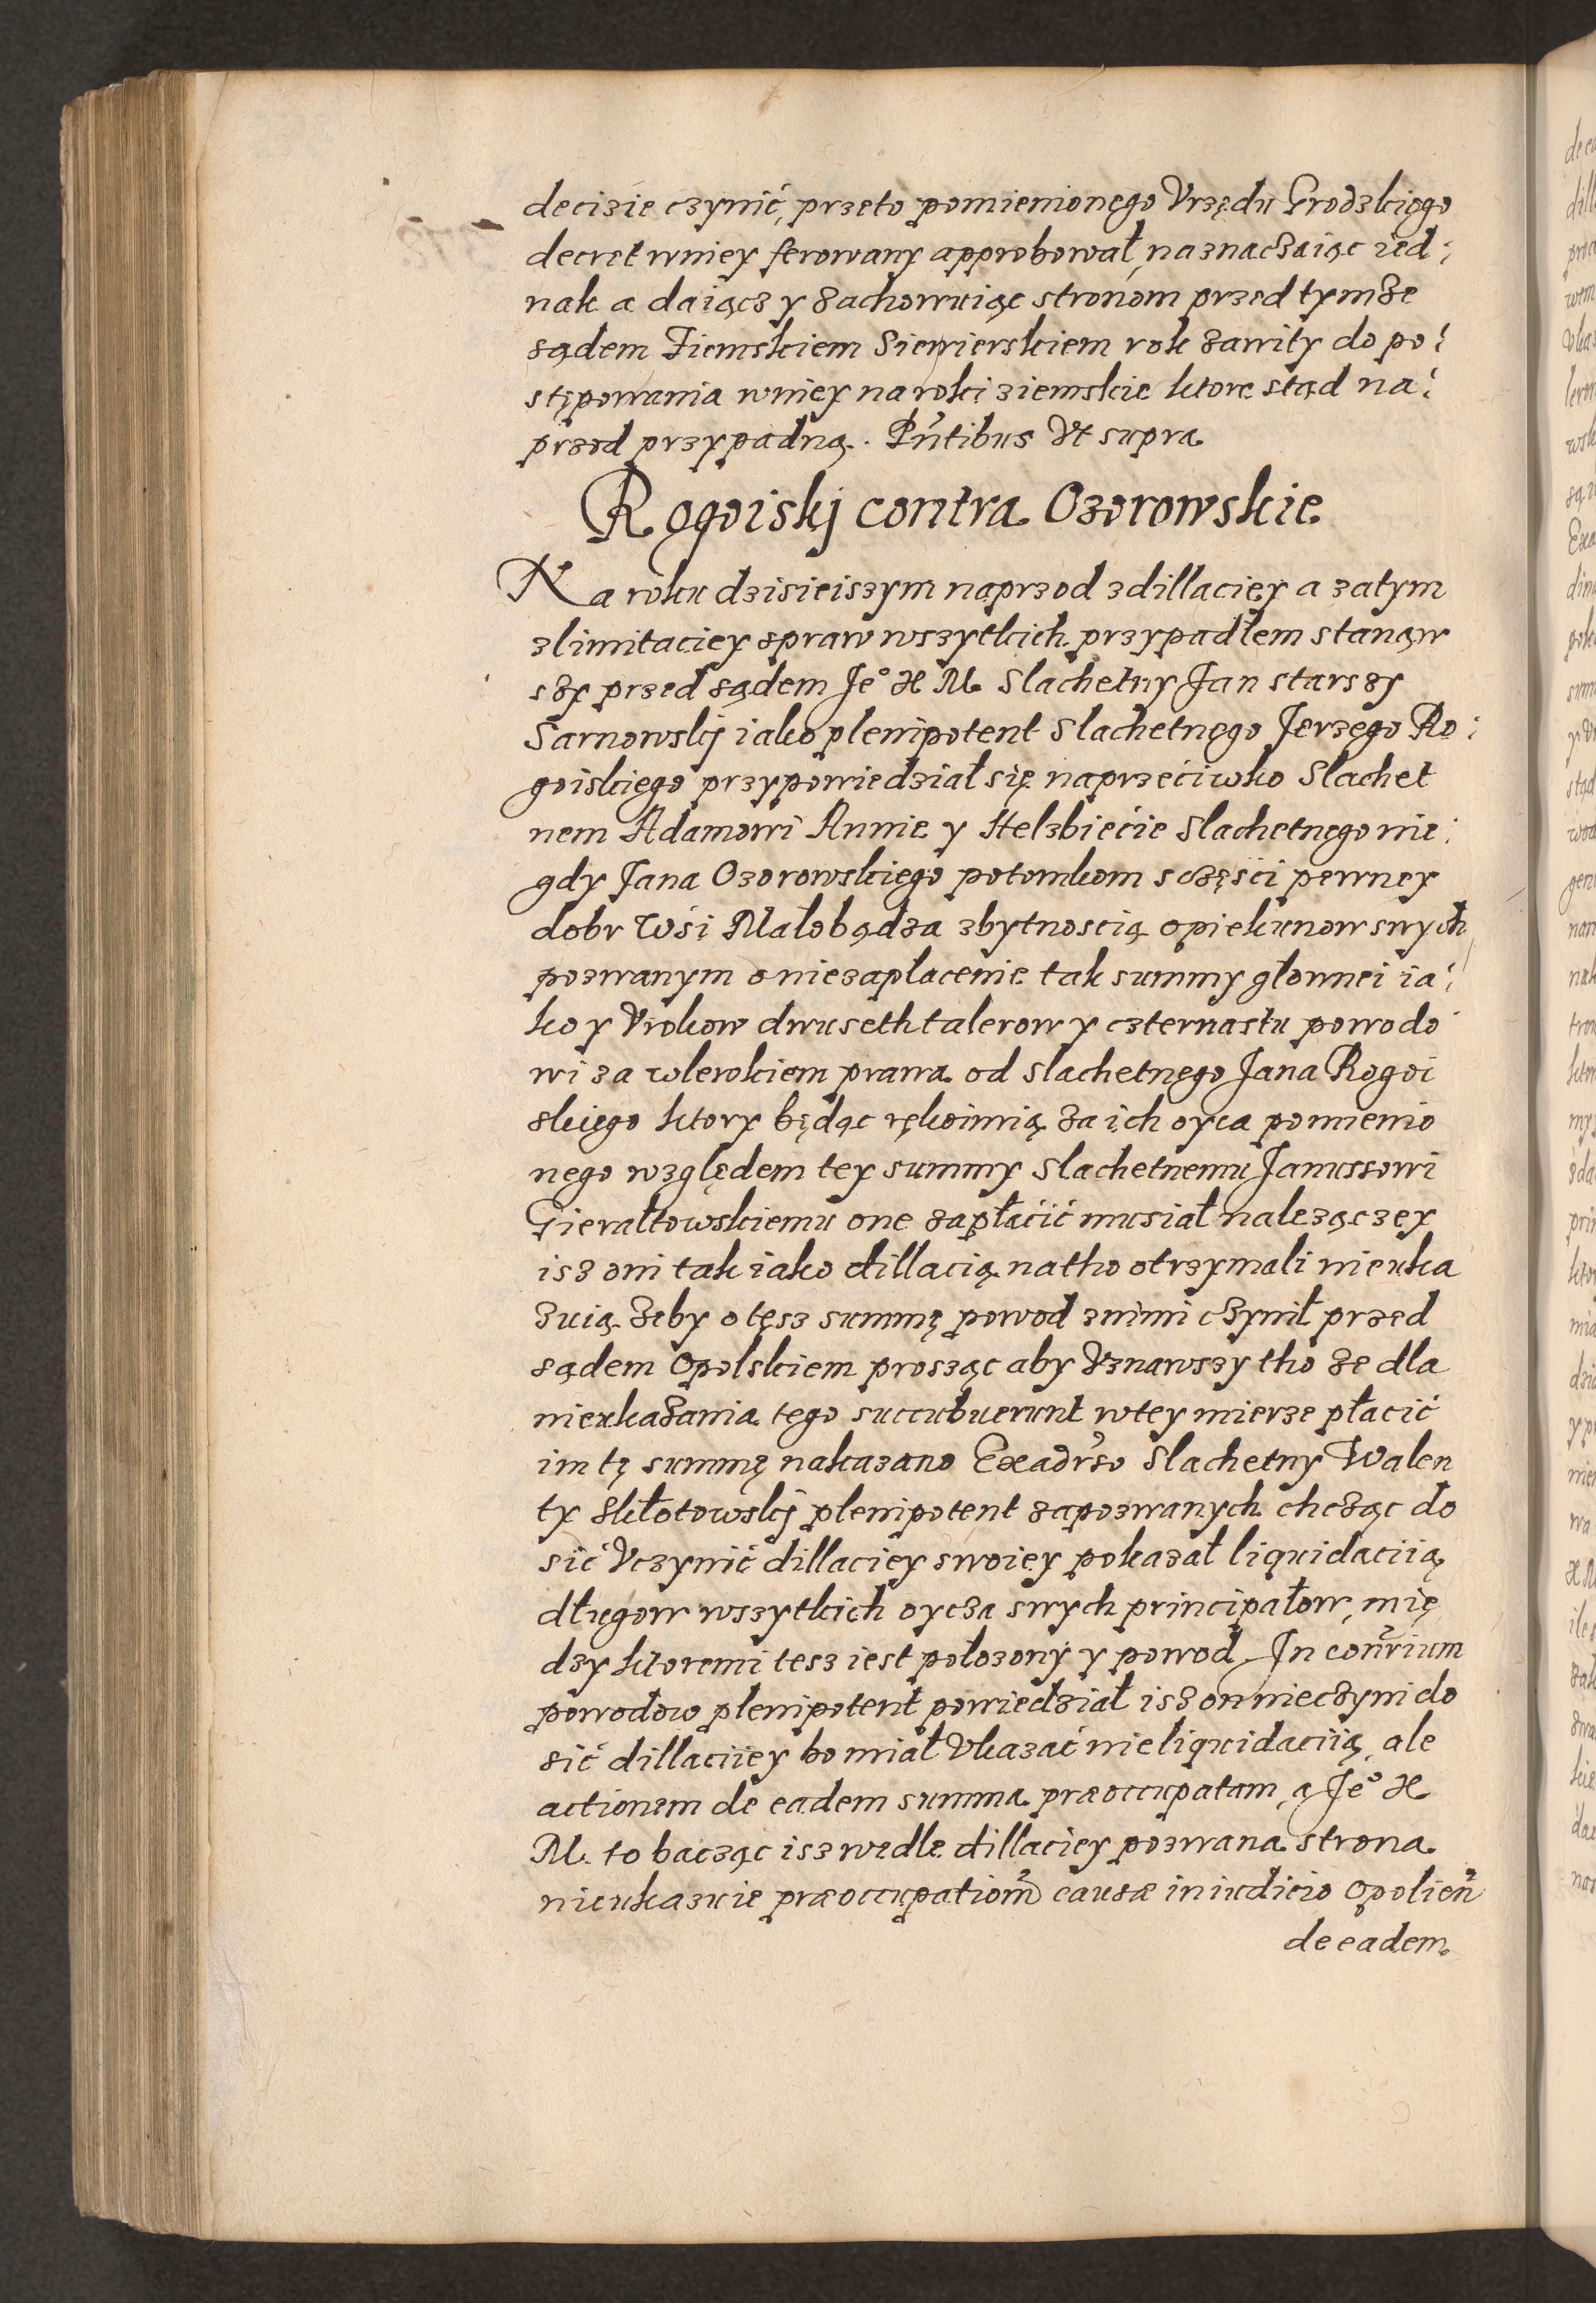 decizie czynić, przeto pomienionego Vrzędu Grodzkięgo
decret wniey ferowany approbował, naznaczaiąc ied:
nak a daiącz y zachowuiąc stronom przed tymze
sądem Ziemskiem Siewierskiem rok zawity do po:
stępowania wniey na roki ziemskie ktore stąd na:
przod przypadną. Pñtibus Vt supra
Rogoiskj contra Ozorowskie
Na roku dzisieiszym naprzod zdillaciey a zatym
zlimitaciey spraw wszytkich przypadłem stanąw
szy przed sądem Je° X M. Slachetny Jan starszy
Sarnowskj iako plenipotent Slachetnego Jerzego Ro:
goiskięgo przypowiedział się naprzeciwko Slachet
nem Adamowi Annie y Helzbiecie Slachetnego nie:
gdy Jana Ozorowskiego potomkom sczęsci pewney
dobr Wsi Małobądza zbytnoscią opiekunow swych
pozwanym o niezapłacenie tak summy głownei ia:
ko y Vrokow dwuseth talerow y czternastu powodo
wi za wlewkiem prawa od slachetnego Jana Rogoi
skięgo ktory będąc rękoimią za ich oyca pomienio
nego względem tey summy Slachetnemu Janussowi
Gierałtowskiemu one zapłacić musiał nalezączey
isz oni tak iako dillacią natho otrzymali nieuka
zuią zeby o tęsz summę powod znimi czynił przed
sądem Opolskiem prosząc aby Vznawszy tho ze dla
nieukazania tego succubuerunt wtey mierze płacić
im tę summę nakazano Exadrso Slachetny Walen
ty Skłotowskj plenipotent zapozwanych chcząc do
sić Vczynić dillaciey swoiey pokazał liquidaciią
długow wszytkich oycza swych principałow, mię
dzy ktoremi tesz iest połozony y powod In conr̃ium
powodow plenipotent powiedział isz on nieczyni do
sić dillaciiey bo miał Vkazać nie liquidaciią, ale
actionem de eadem summa præoccupatam, a Je° X
M. to bacząc isz wedle dillaciey pozwana strona
nieukazuie præoccupationẽ causæ in iudicio opolieñ
de eadem